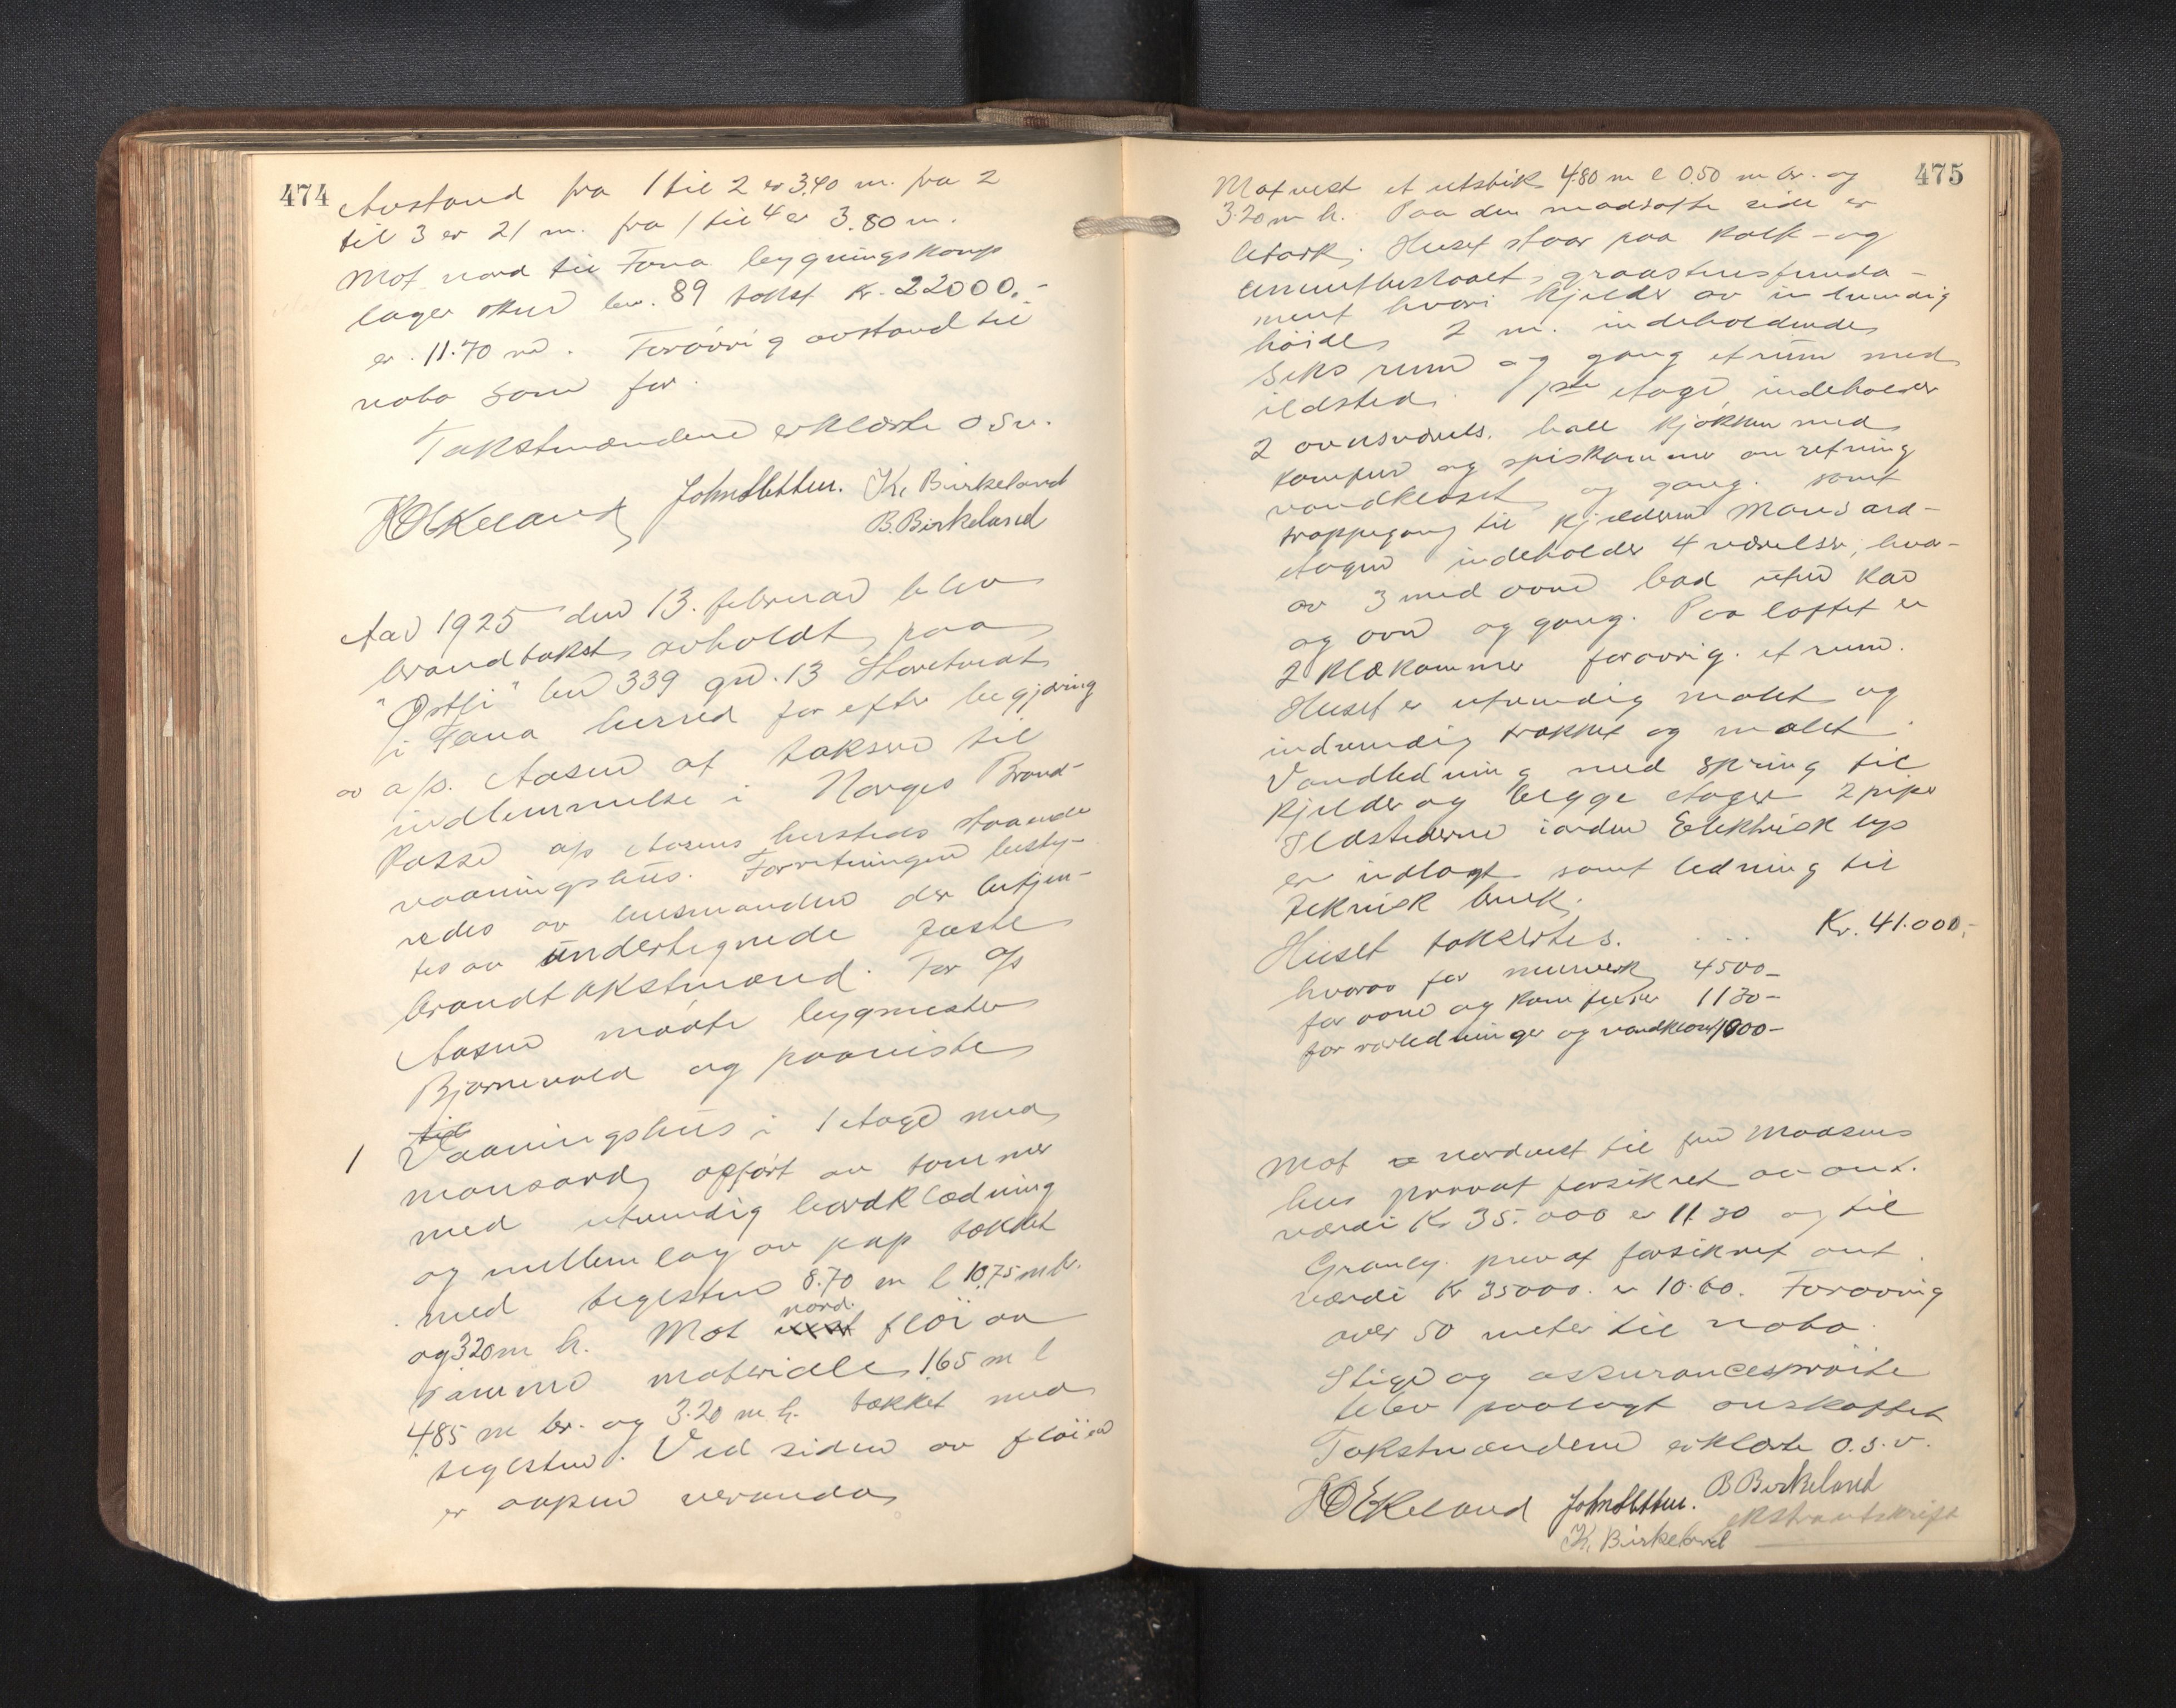 474
Avstand fra 1 til 2 er 3.40 m. fra 2
til 3 er 21 m. fra 1 til 4 er 3.80 m.
Mot nord til Fana bygningskomp
lager skur bn. 89 takst Kr. 22000.-
er 11.70 m. Forøvrig avstand til
nabo som før.
Takstmændene erklærte osv.
HOEkeland John Sletten. K. Birkeland
B. Birkeland
Aar 1925 den 13. februar blev
brandtakst avholdt paa
"Østli" bn 339 gn. 13 Storetveit
i Fana herred for efter begjæring
av a/s. Aasen at taksere til
indlemmelse i Norges Brand-
kasse a/s Aasens hersteds staaende
vaaningshus. Forretningen besty-
redes av lensmanden der betjen-
tes av undertegnede faste
brandtakstmænd. For a/s
Aasen møtte bygmester
Bjørnevold og paaviste
1 Vaaningshus i 1 etage med
mansard, opført av tømmer
med utvendig bordklædning
og mellemlag av pap tækket
med teglsten 8.70 m l 10.75 m br.
og 3.20 m h. Mot nord. fløi av
samme materiale 1.65 m l
4.85 m br. og 3.20 m h. tækket med
teglsten. Ved siden av fløien
er aapen veranda
475
Mot vest et utstik 4.80 m l 0.50 m br. og
3.20 m h. Paa den motsatte side er
et ark. Huset staar paa kalk- og
cementbestaaet graastensfunda-
ment hvori kjelder av indvendig
høide 2 m. indeholdende
seks rum og gang et rum med
ildsted. 1ste etage indeholder
2 ovnsværels. hall kjøkken med
komfur og spiskammer anretning
vandkloset og gang. samt
trappegang til kjelderen Mansard-
etagen indeholder 4 værelser, hvor-
av 3 med ovne bad uten kar
og ovn og gang. Paa loftet er
2 klækammer forøvrig. et rum.
Huset er utvendig malet og
indvendig trækket og malet.
Vandledning med spring til
kjelder og begge etager 2 piper
Ildstederne i orden Elektrisk lys
er indlagt samt ledning til
teknisk bruk.
Huset takseres. ... Kr. 41.000.-
hvorav for murverk 4500-
for ovne og komfurer 1130-
for rørledninger og vandkloset 1900-
Mot nordvest til fru Monsens
hus privat forsikret av ant.
værdi Kr 35.000 er 11.30 og til
Granly. privat forsikret ant.
værdi Kr 35000. er 10.60. Forøvrig
over 50 meter til nabo.
Stige og assurancesprøite
blev paalagt anskaffet
Takstmændene erklærte o.s.v.
HOEkeland John Sletten. B Birkeland
K. Birkeland ekstrautskrift